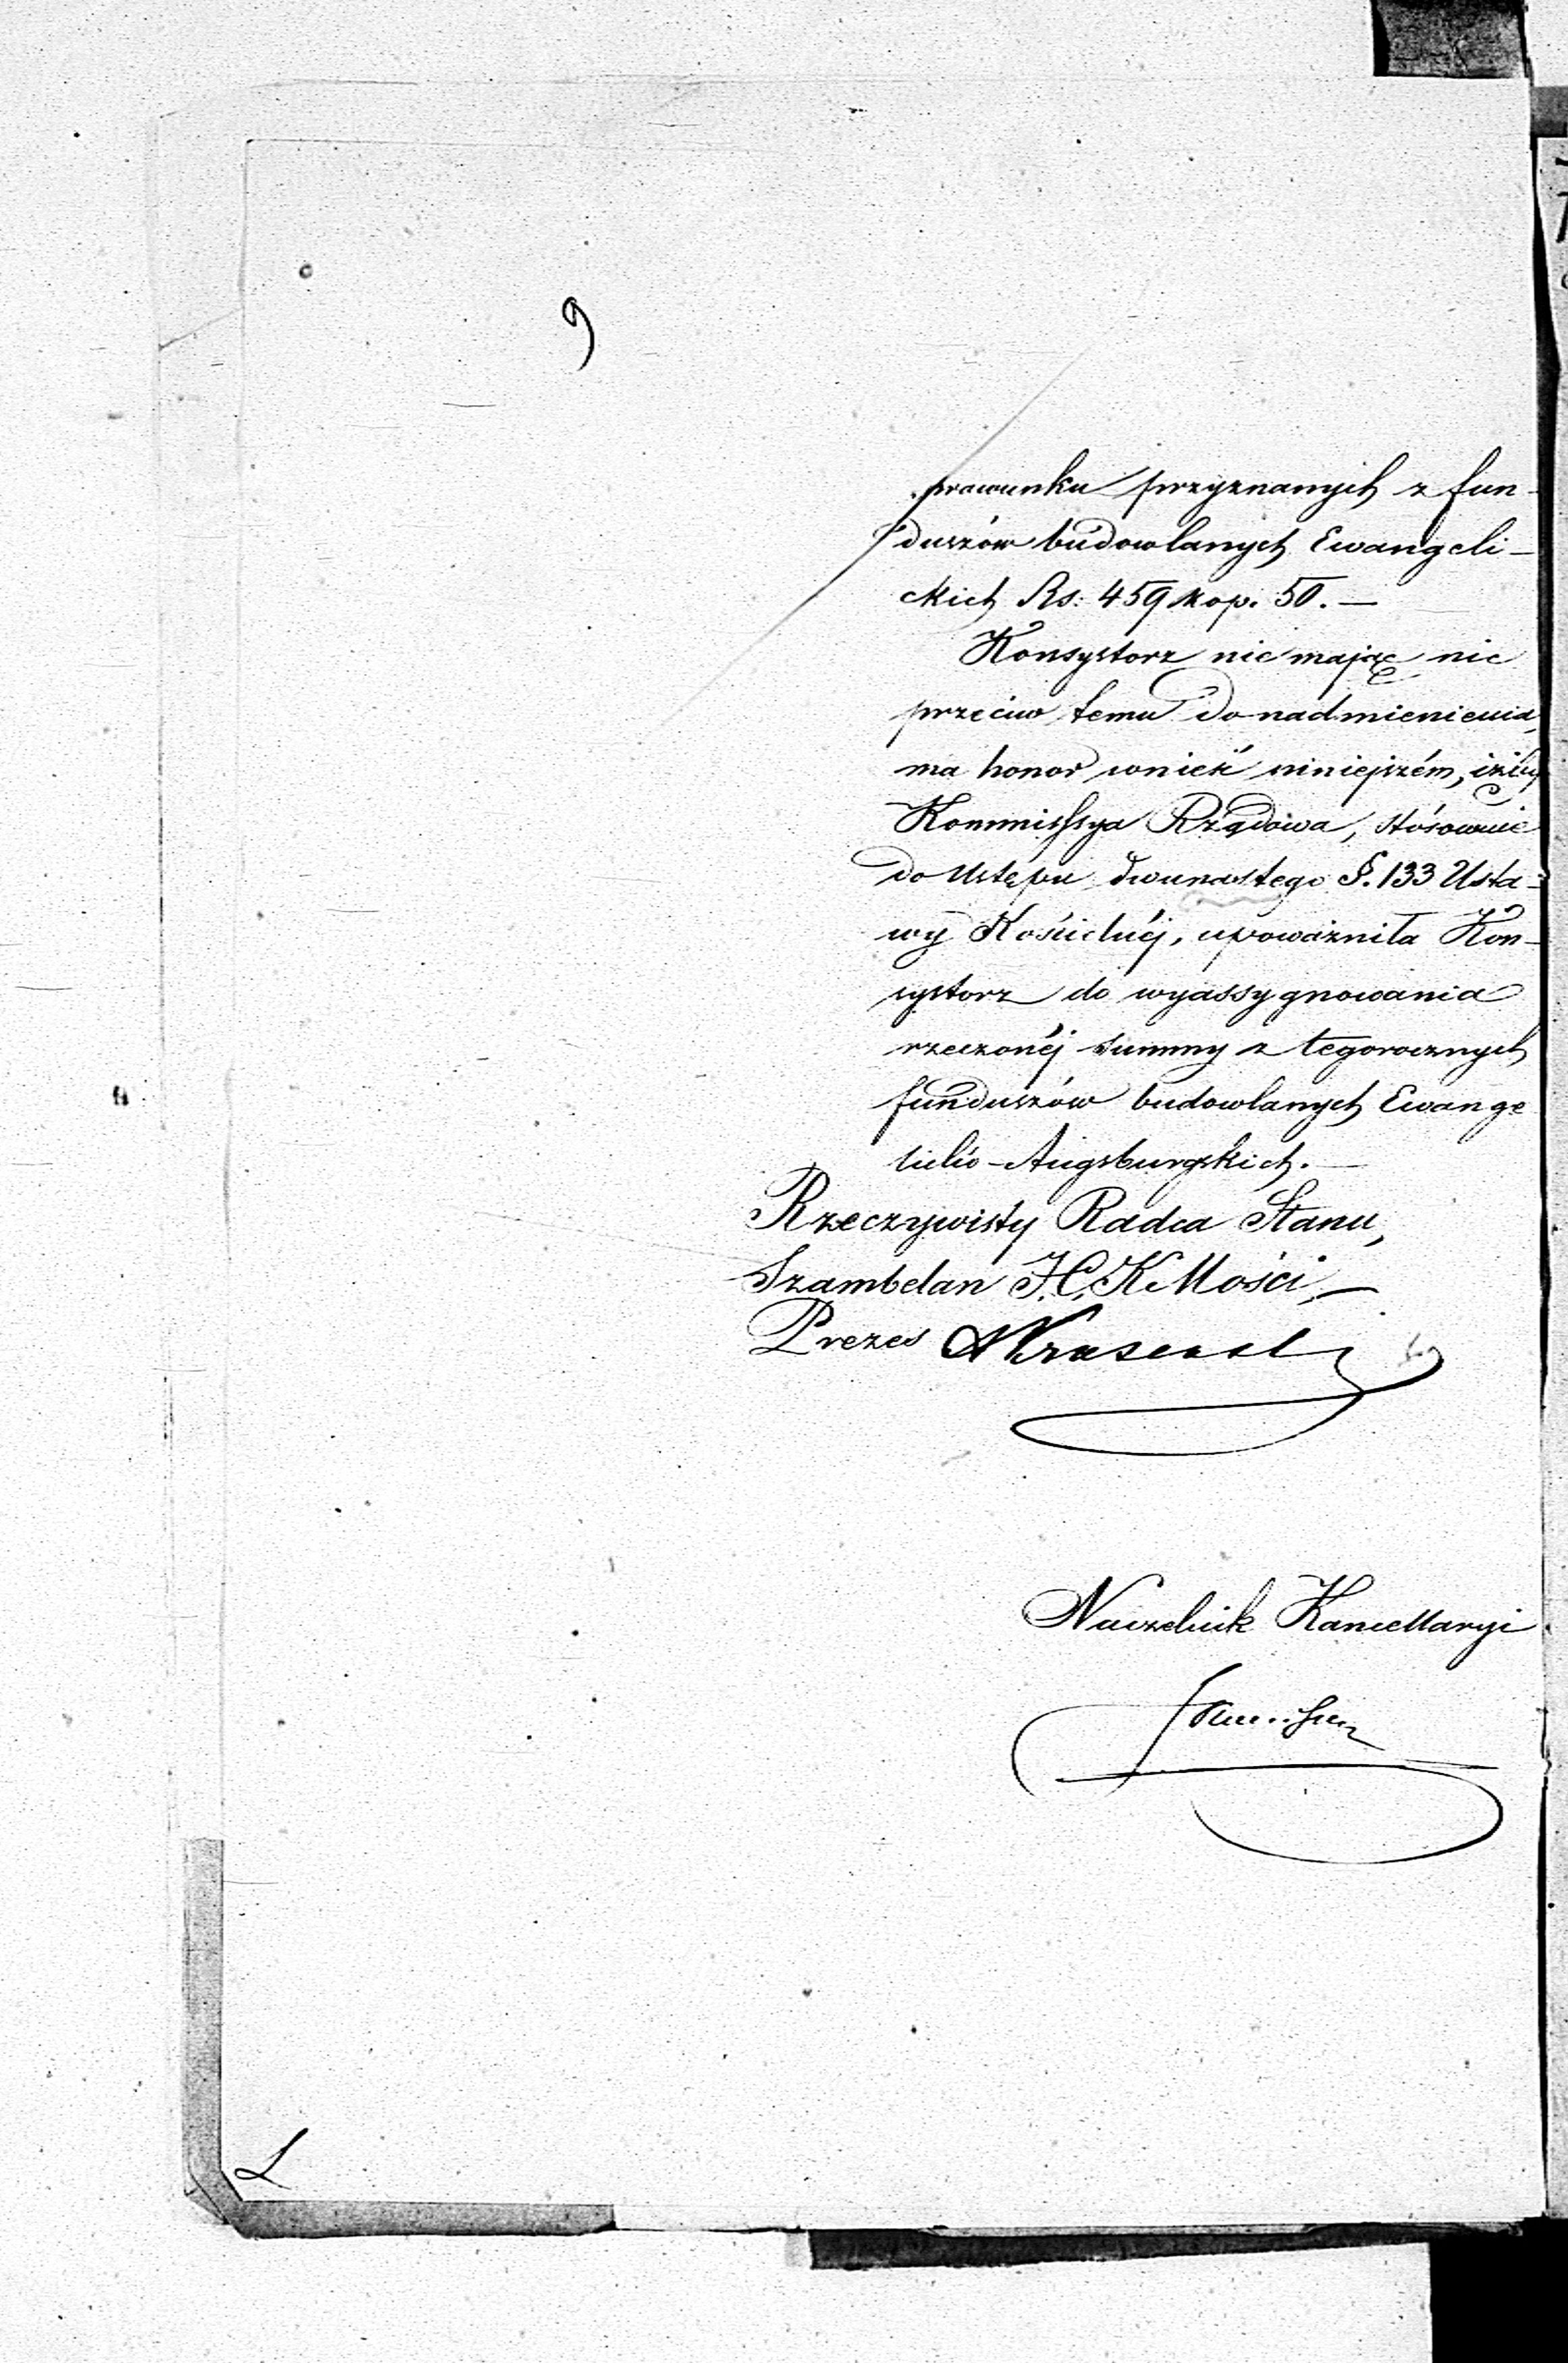 9
prawunku przyznanych z fun-
duszów budowlanych Ewangeli-
ckich Rs: 459 kop. 50. —
Konsystorz nie mając nic
przeciw temu do nadmienienia,
ma honor wnieść niniejszém, iżby
Kommissya Rządowa, stósownie
do Ustępu dwunastego §. 133 Usta-
wy Kościelnéj, upoważniła Kon-
systorz do wyassygnowania
rzeczonéj summy z tegorocznych
funduszów budowlanych Ewange
licko-Augsburgskich. —
Rzeczywisty Radca Stanu,
Szambelan J.C.K Mości, —
Prezes
Naczelnik Kancellaryi